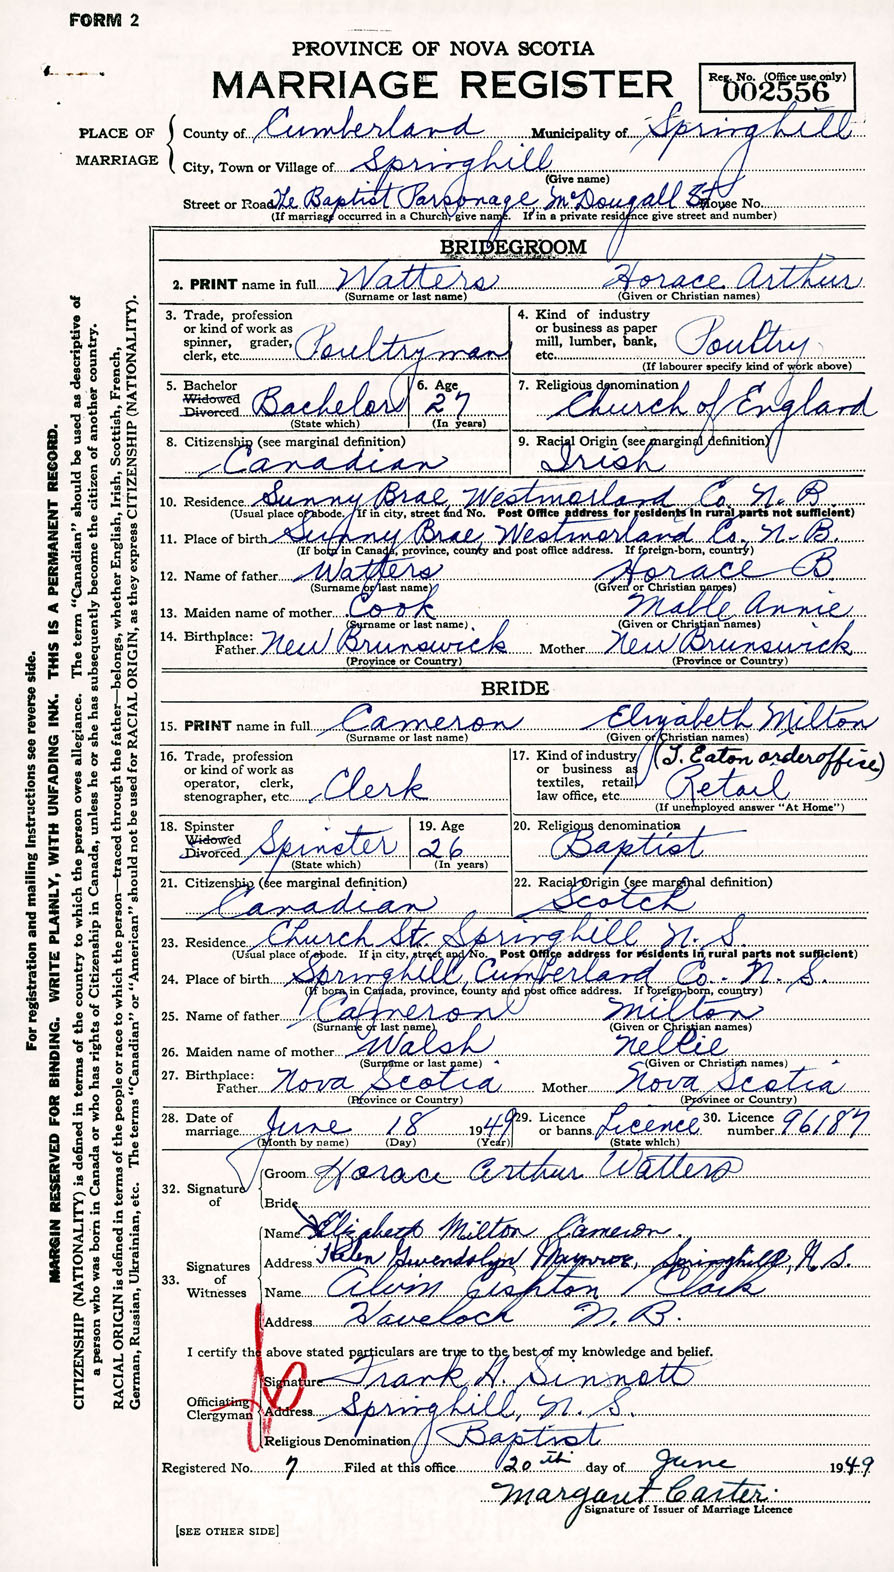 FORM 2
PROVINCE OF NOVA SCOTIA
MARRIAGE REGISTER
Reg. No. (Office use only)
002556
PLACE OF MARRIAGE
County of Cumberland Municipality of Springhill
City, Town or Village of Springhill
(Give name)
Street or Road The Baptist Parsonage, McDougall St House No.
(If marriage occurred in a Church, give name. If in a private residence give street and number)
BRIDEGROOM
2. PRINT name in full Watters Horace Arthur
(Surname or last name) (Given or Christian names)
3. Trade, profession or kind of work as spinner, grader, clerk, etc. Poultryman
4. Kind of industry or business as paper mill, lumber, bank, etc. Poultry
(If labourer specify kind of work above)
5. Bachelor Widowed Divorced Bachelor
(State which)
6. Age 27
(In years)
7. Religious denomination Church of England
8. Citizenship (see marginal definition) Canadian
9. Racial Origin (see marginal definition) Irish
10. Residence Sunny Brae, Westmorland Co. N. B.
(Usual place of abode. If in city, street and No. Post Office address for residents in rural parts not sufficient)
11. Place of birth Sunny Brae, Westmorland Co. N. B.
(If born in Canada, province, county and post office address. If foreign-born, country)
12. Name of father Watters Horace B
(Surname or last name) (Given or Christian names)
13. Maiden name of mother Cook Mable Annie
(Surname or last name) (Given or Christian names)
14. Birthplace: Father New Brunswick Mother New Brunswick
(Province or Country) (Province or Country)
BRIDE
15. PRINT name in full Cameron Elizabeth Milton
(Surname or last name) (Given or Christian names)
16. Trade, profession or kind of work as operator, clerk, stenographer, etc. Clerk
17. Kind of industry or business as textiles, retail, law office, etc. (T. Eaton order office) Retail
(If unemployed answer "At Home")
18. Spinster Widowed Divorced Spinster
(State which)
19. Age 26
(In years)
20. Religious denomination Baptist
21. Citizenship (see marginal definition) Canadian
22. Racial Origin (see marginal definition) Scotch
23. Residence Church St. Springhill N. S.
(Usual place of abode. If in city, street and No. Post Office address for residents in rural parts not sufficient)
24. Place of birth Springhill, Cumberland Co. N. S.
(If born in Canada, province, county and post office address. If foreign-born, country)
25. Name of father Cameron Milton
(Surname or last name) (Given or Christian names)
26. Maiden name of mother Walsh Nellie
(Surname or last name) (Given or Christian names)
27. Birthplace: Father Nova Scotia Mother Nova Scotia
(Province or Country) (Province or Country)
28. Date of marriage June 18 1949
(Month by name) (Day) (Year)
29. Licence or banns Licence
(State which)
30. Licence number 96187
32. Signature of
Groom Horace Arthur Watters
Bride
33. Signatures of Witnesses
Name Elizabeth Milton Cameron.
Address Helen Gwendolyn Springhill, N. S.
Name Alvin Clark
Address Havelock N. B.
I certify the above stated particulars are true to the best of my knowledge and belief.
Officiating Clergyman
Signature Frank H. Sinnott
Address Springhill, N. S.
Religious Denomination Baptist
Registered No. 7 Filed at this office 20th day of June 1949
Margaret Carter.
Signature of Issuer of Marriage Licence
[SEE OTHER SIDE]
For registration and mailing instructions see reverse side.
MARGIN RESERVED FOR BINDING. WRITE PLAINLY, WITH UNFADING INK. THIS IS A PERMANENT RECORD.
CITIZENSHIP (NATIONALITY) is defined in terms of the country to which the person owes allegiance. The term "Canadian" should be used as descriptive of
a person who was born in Canada or who has rights of Citizenship in Canada, unless he or she has subsequently become the citizen of another country.
RACIAL ORIGIN is defined in terms of the people or race to which the person—traced through the father—belongs, whether English, Irish, Scottish, French,
German, Russian, Ukrainian, etc. The terms "Canadian" or "American" should not be used for RACIAL ORIGIN, as they express CITIZENSHIP (NATIONALITY).